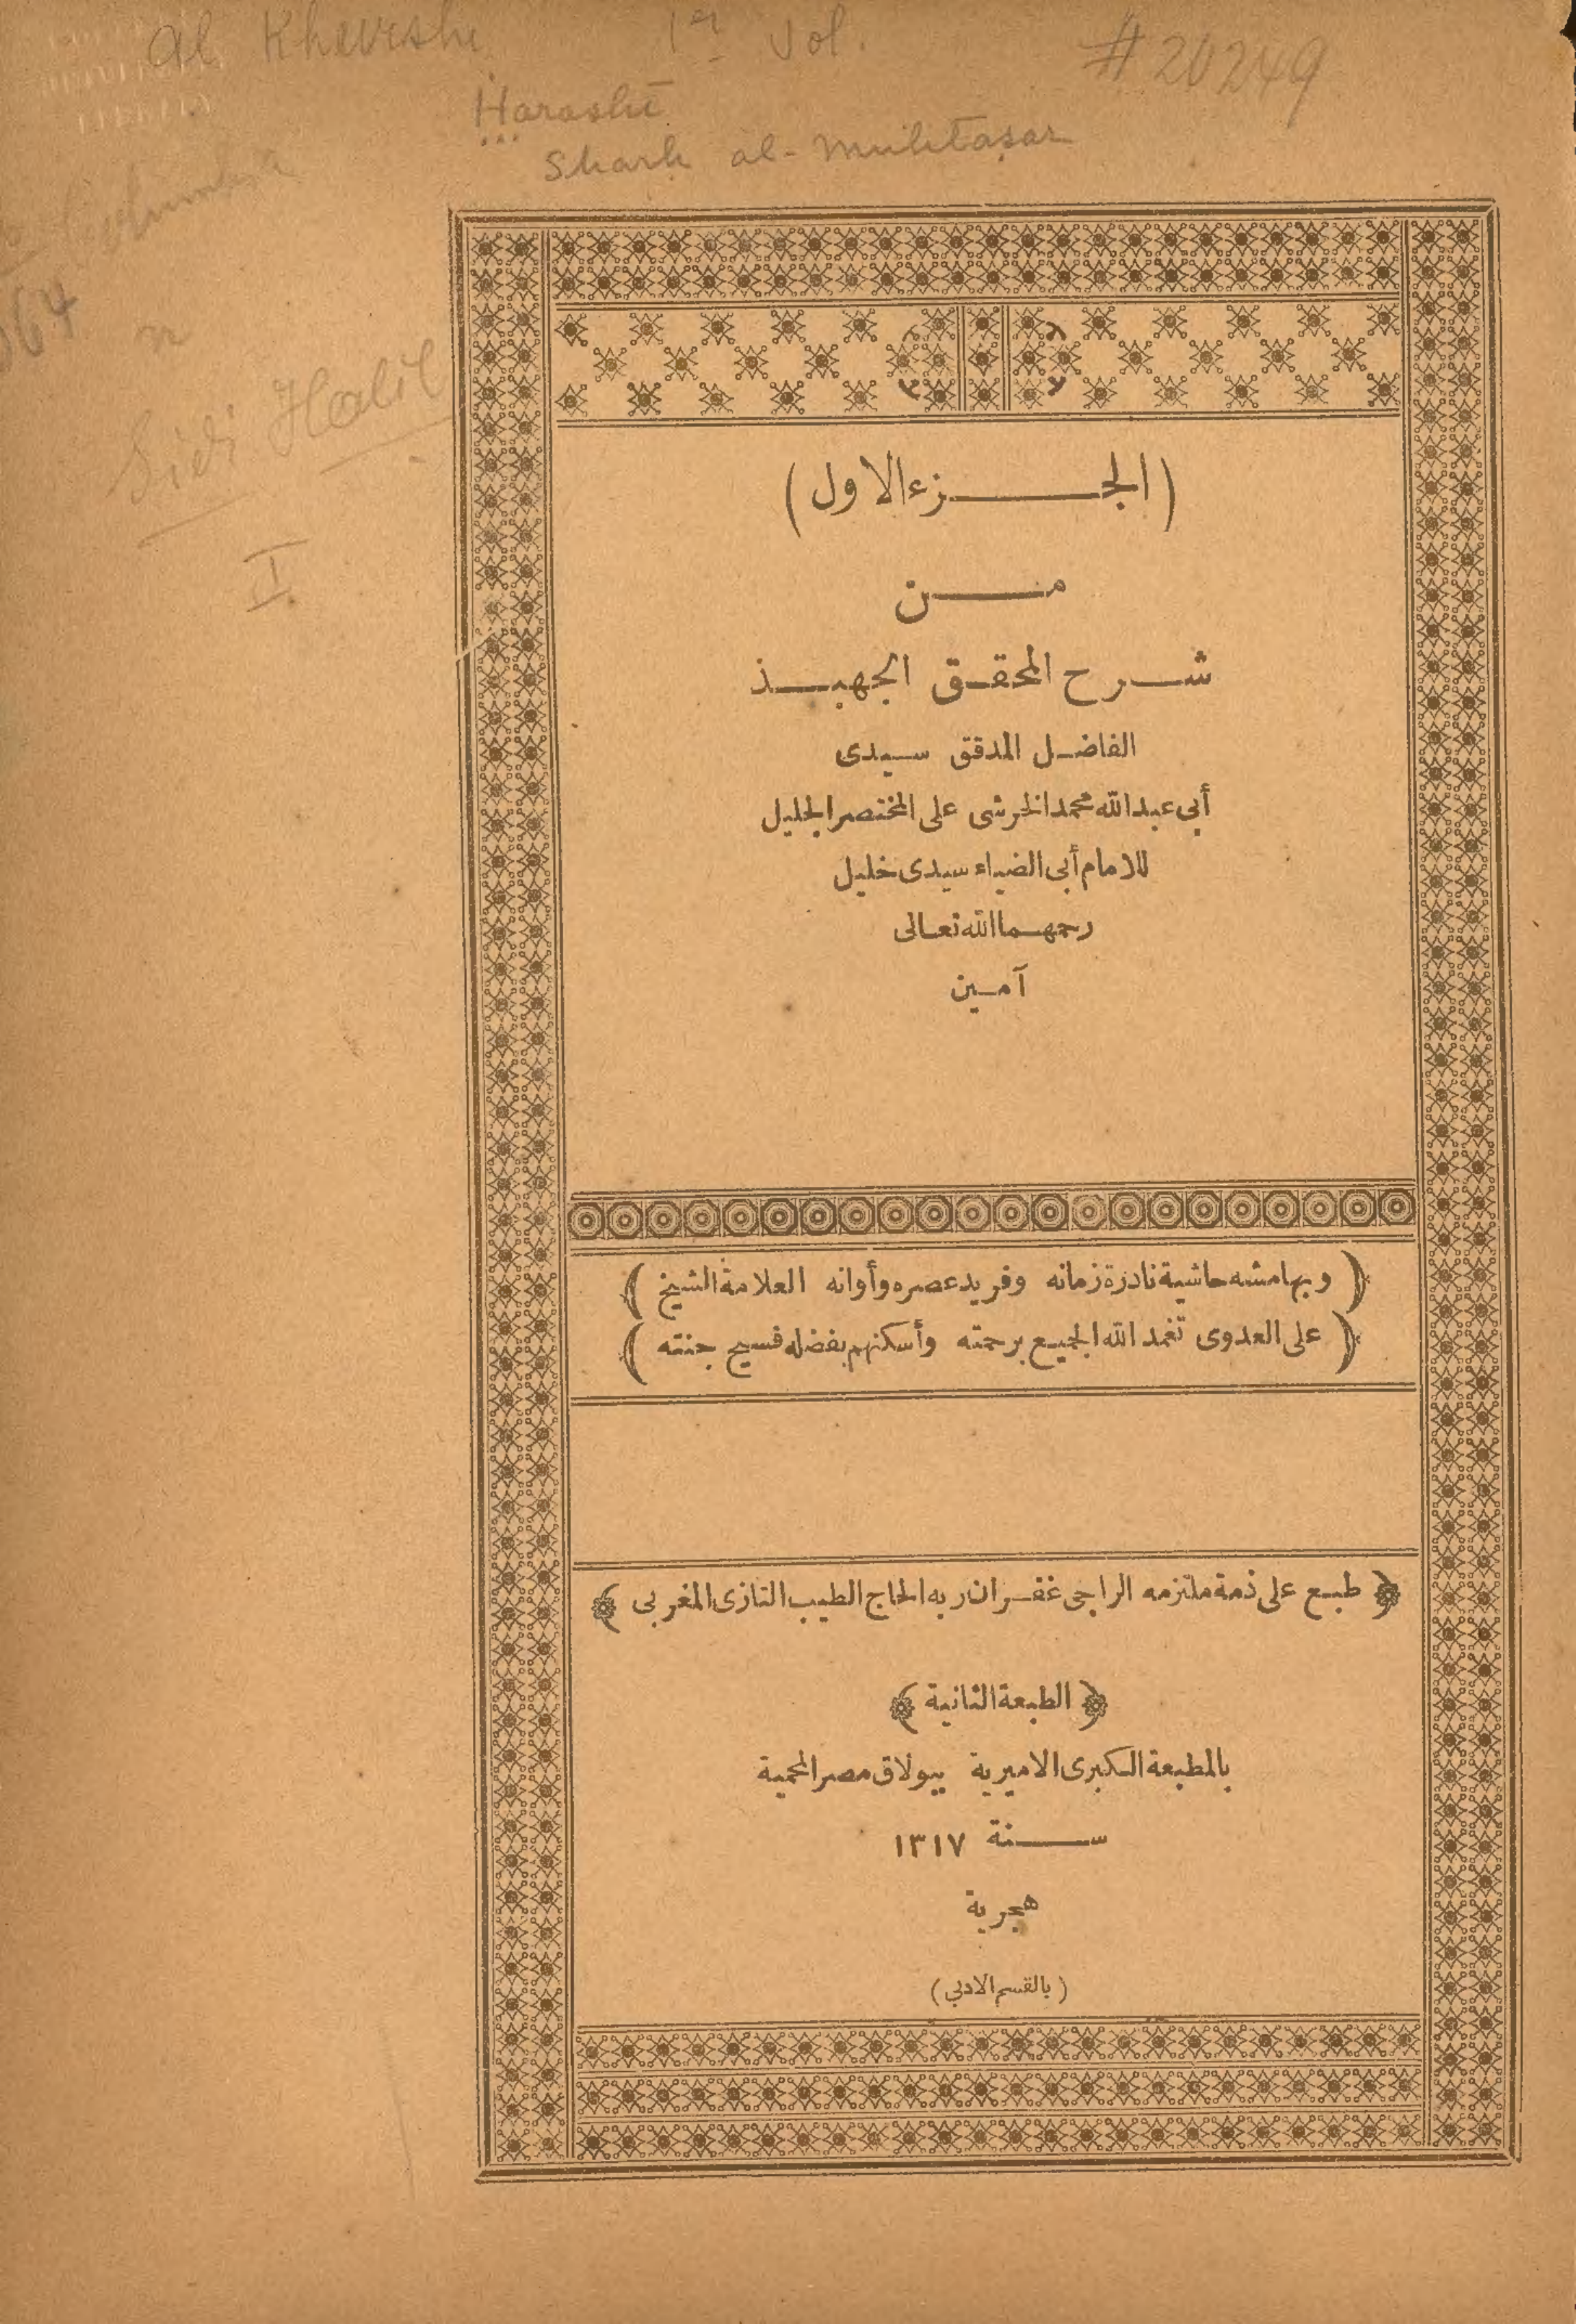 al Khereshi 1er Vol. #20249
Ḫarashī
Sharḥ al-Muḫtaṣar
Sidi Halil
I
(الجزء الاول)
من
شرح المحقق الجهبذ
الفاضل المدقق سيدى
أبى عبد الله محمد الخرشى على المختصر الجليل
للامام أبى الضياء سيدى خليل
رحمهما الله تعالى
آمين
(وبهامشه حاشية نادرة زمانه وفريد عصره وأوانه العلامة الشيخ)
(على العدوى تغمد الله الجميع برحمته وأسكنهم بفضله فسيح جنته)
﴿طبع على ذمة ملتزمه الراجى غفران ربه الحاج الطيب التازى المغربى﴾
﴿الطبعة الثانية﴾
بالمطبعة الكبرى الاميرية ببولاق مصر المحمية
سنة ١٣١٧
هجرية
(بالقسم الادبى)